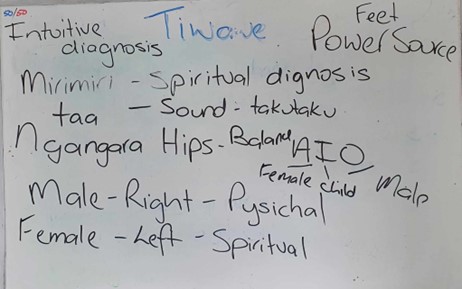 50/50
Intuitive diagnosis
Tiwaiwe
Feet
Power Source
Mirimiri - Spiritual dignosis
taa - Sound - takutaku
Ngangara Hips - Balance
AIO
Female child Male
Male - Right - Pysichal
Female - Left - Spiritual